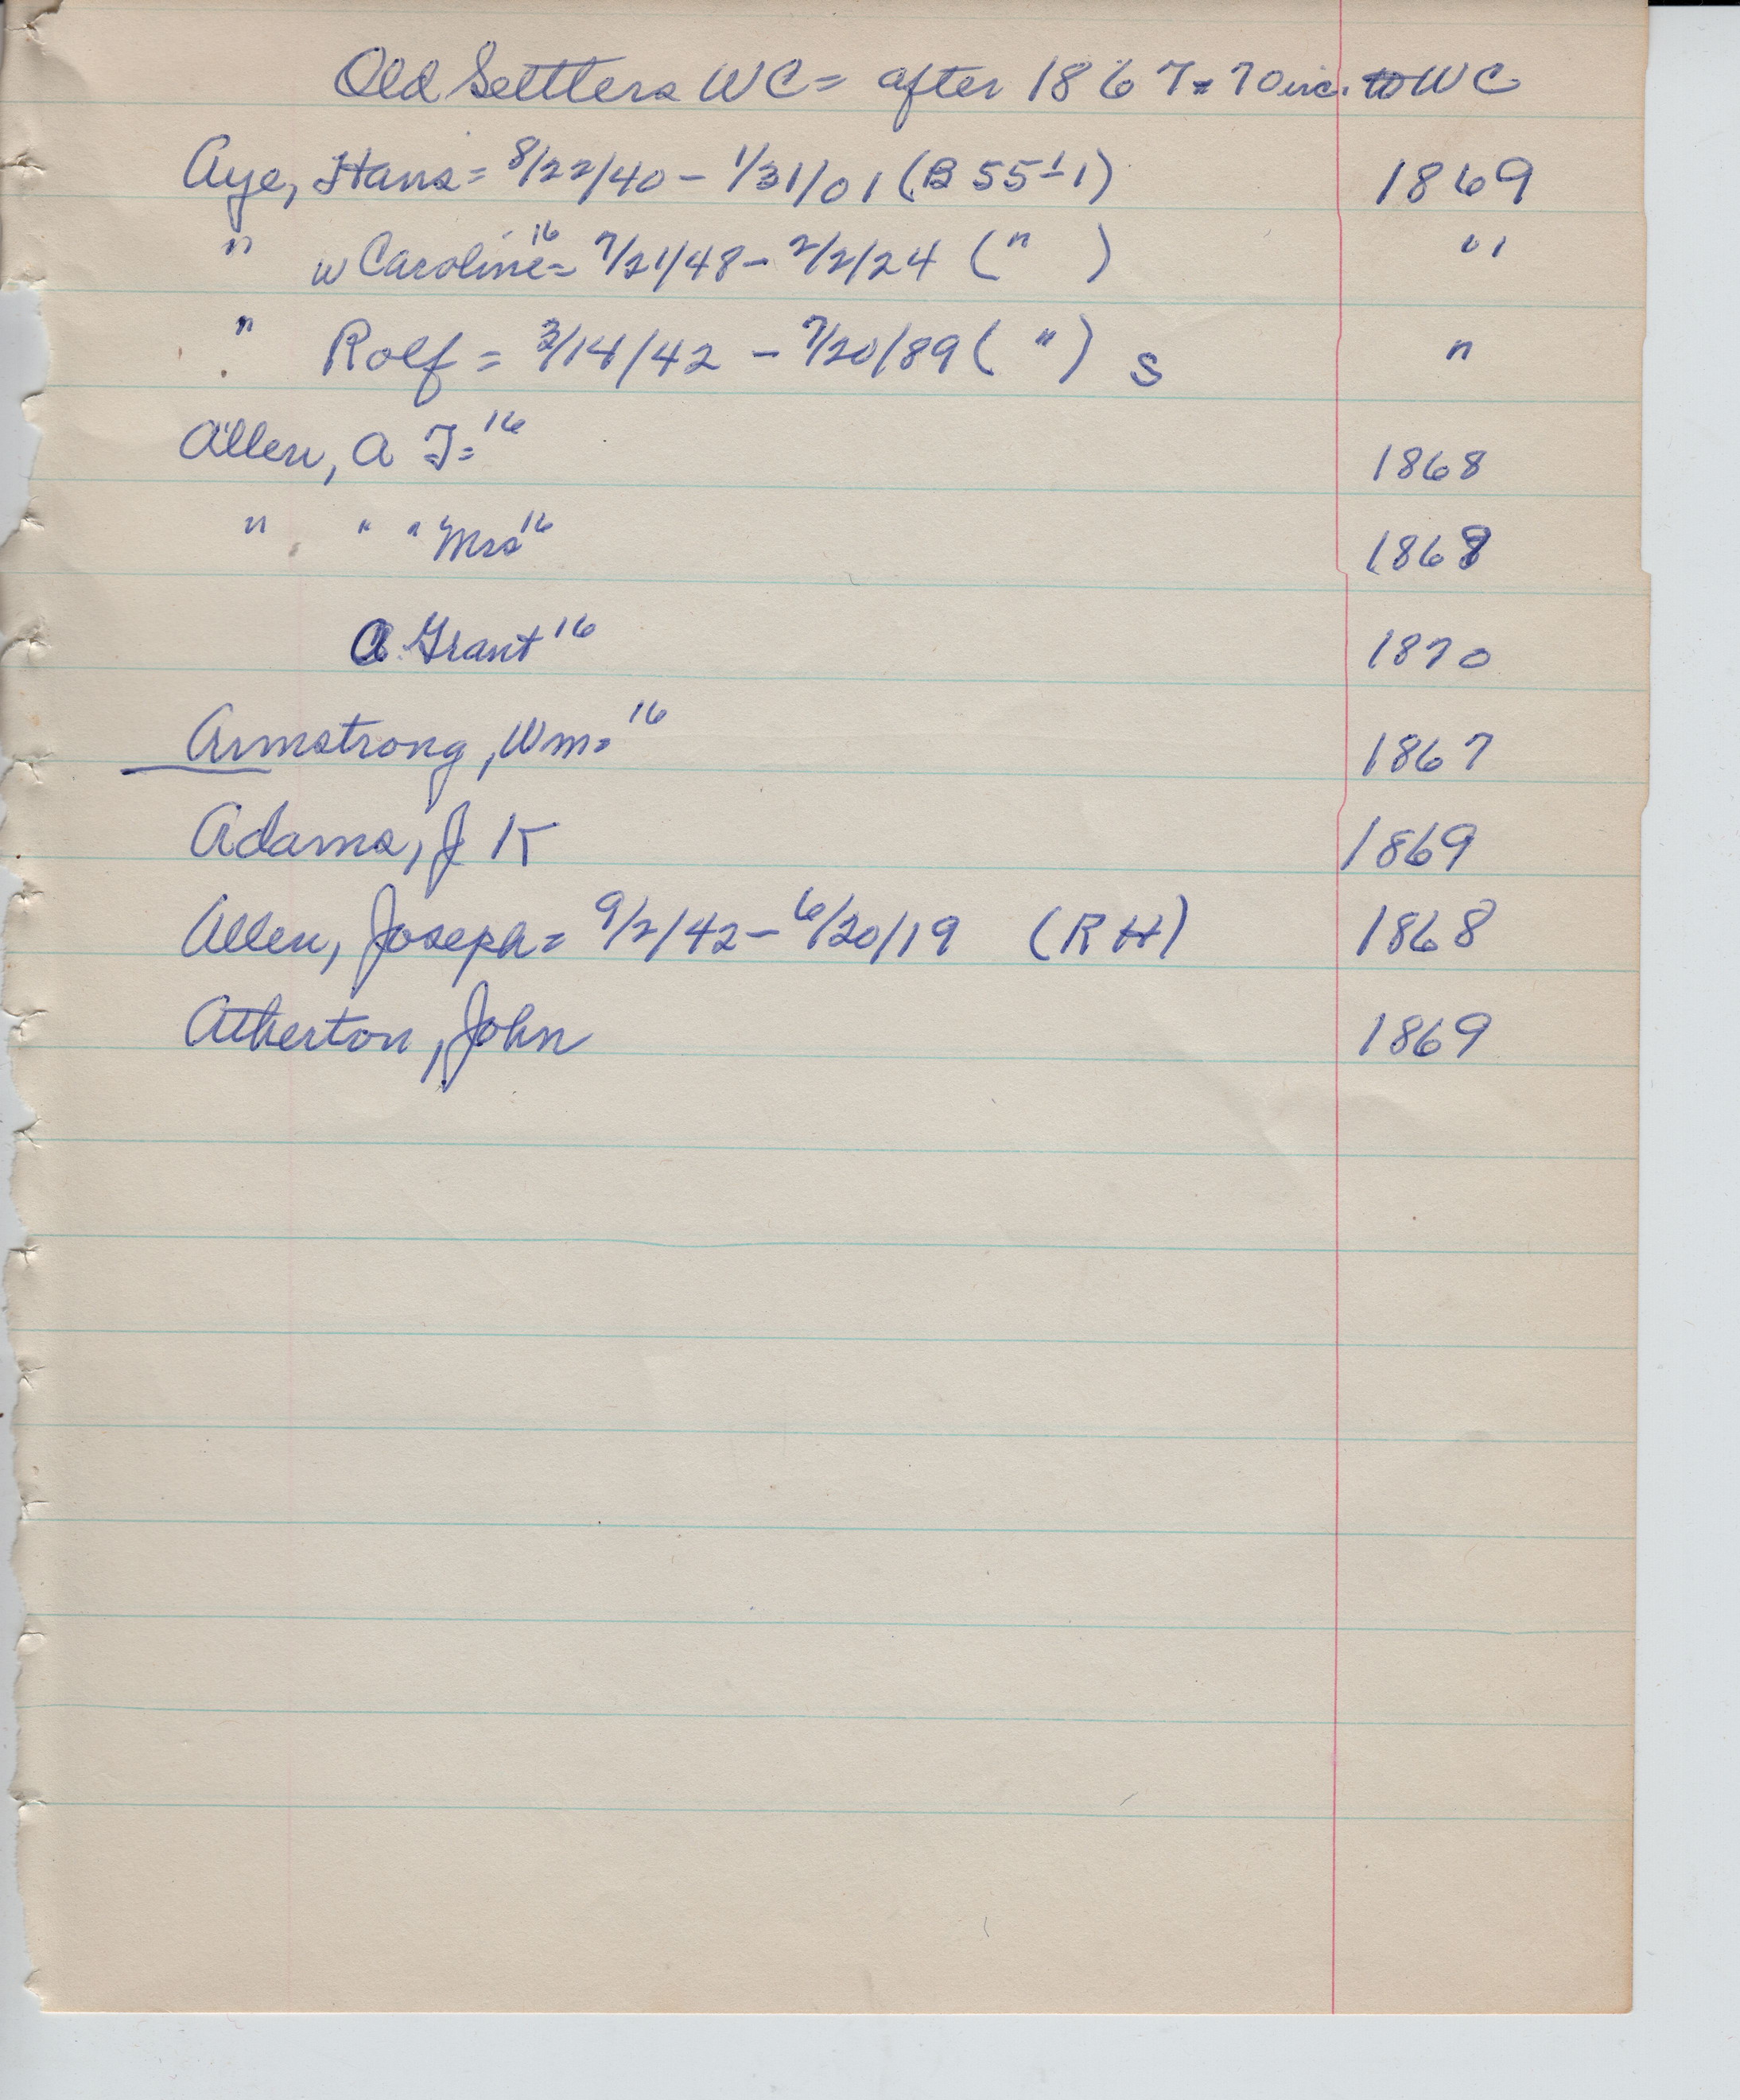 Old Settlers WC = after 1867 = 70 inc. to WC
Aye, Hans = 8/22/40 - 1/31/01 (B 55-1) 1869
" w Caroline 16 = 7/21/48 - 2/2/24 ( " ) "
" Rolf = 3/14/42 - 7/20/89 ( " ) S "
Allen, A J = 16 1868
" " " Mrs 16 1868
A. Grant 16 1870
Armstrong, Wm = 16 1867
Adams, J K 1869
Allen, Joseph = 9/2/42 - 6/20/19 (R H) 1868
Atherton, John 1869